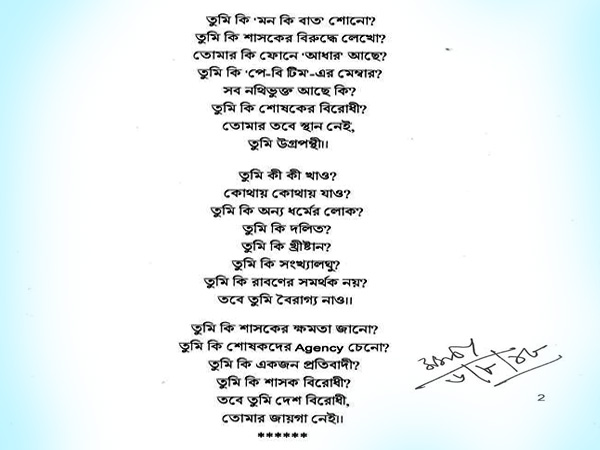 তুমি কি 'মন কি বাত' শোনো?
তুমি কি শাসকের বিরুদ্ধে লেখো?
তোমার কি ফোনে 'আধার' আছে?
তুমি কি 'পে-বি টিম'-এর মেম্বার?
সব নথিভুক্ত আছে কি?
তুমি কি শোষকের বিরোধী?
তোমার তবে স্থান নেই,
তুমি উগ্রপন্থী।।
তুমি কী কী খাও?
কোথায় কোথায় যাও?
তুমি কি অন্য ধর্মের লোক?
তুমি কি দলিত?
তুমি কি খ্রীষ্টান?
তুমি কি সংখ্যালঘু?
তুমি কি রাবণের সমর্থক নয়?
তবে তুমি বৈরাগ্য নাও।।
তুমি কি শাসকের ক্ষমতা জানো?
তুমি কি শোষকদের Agency চেনো?
তুমি কি একজন প্রতিবাদী?
তুমি কি শাসক বিরোধী?
তবে তুমি দেশ বিরোধী,
তোমার জায়গা নেই।।
******
2